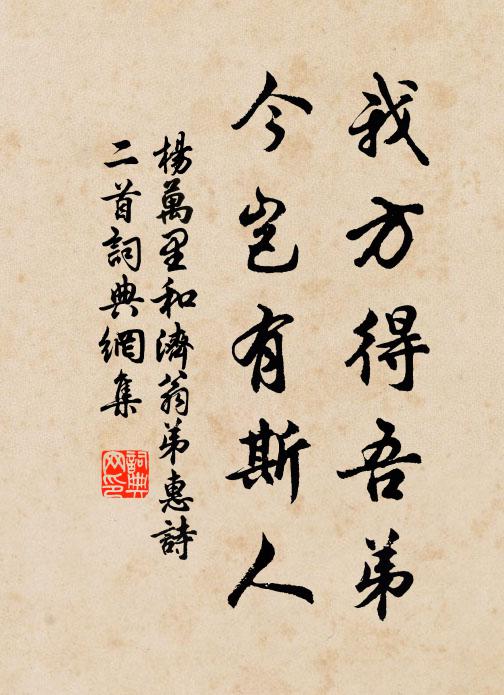 我方得吾弟
今豈有斯人
楊萬里和濟翁弟惠詩
二首詞典網集
詞典
网印